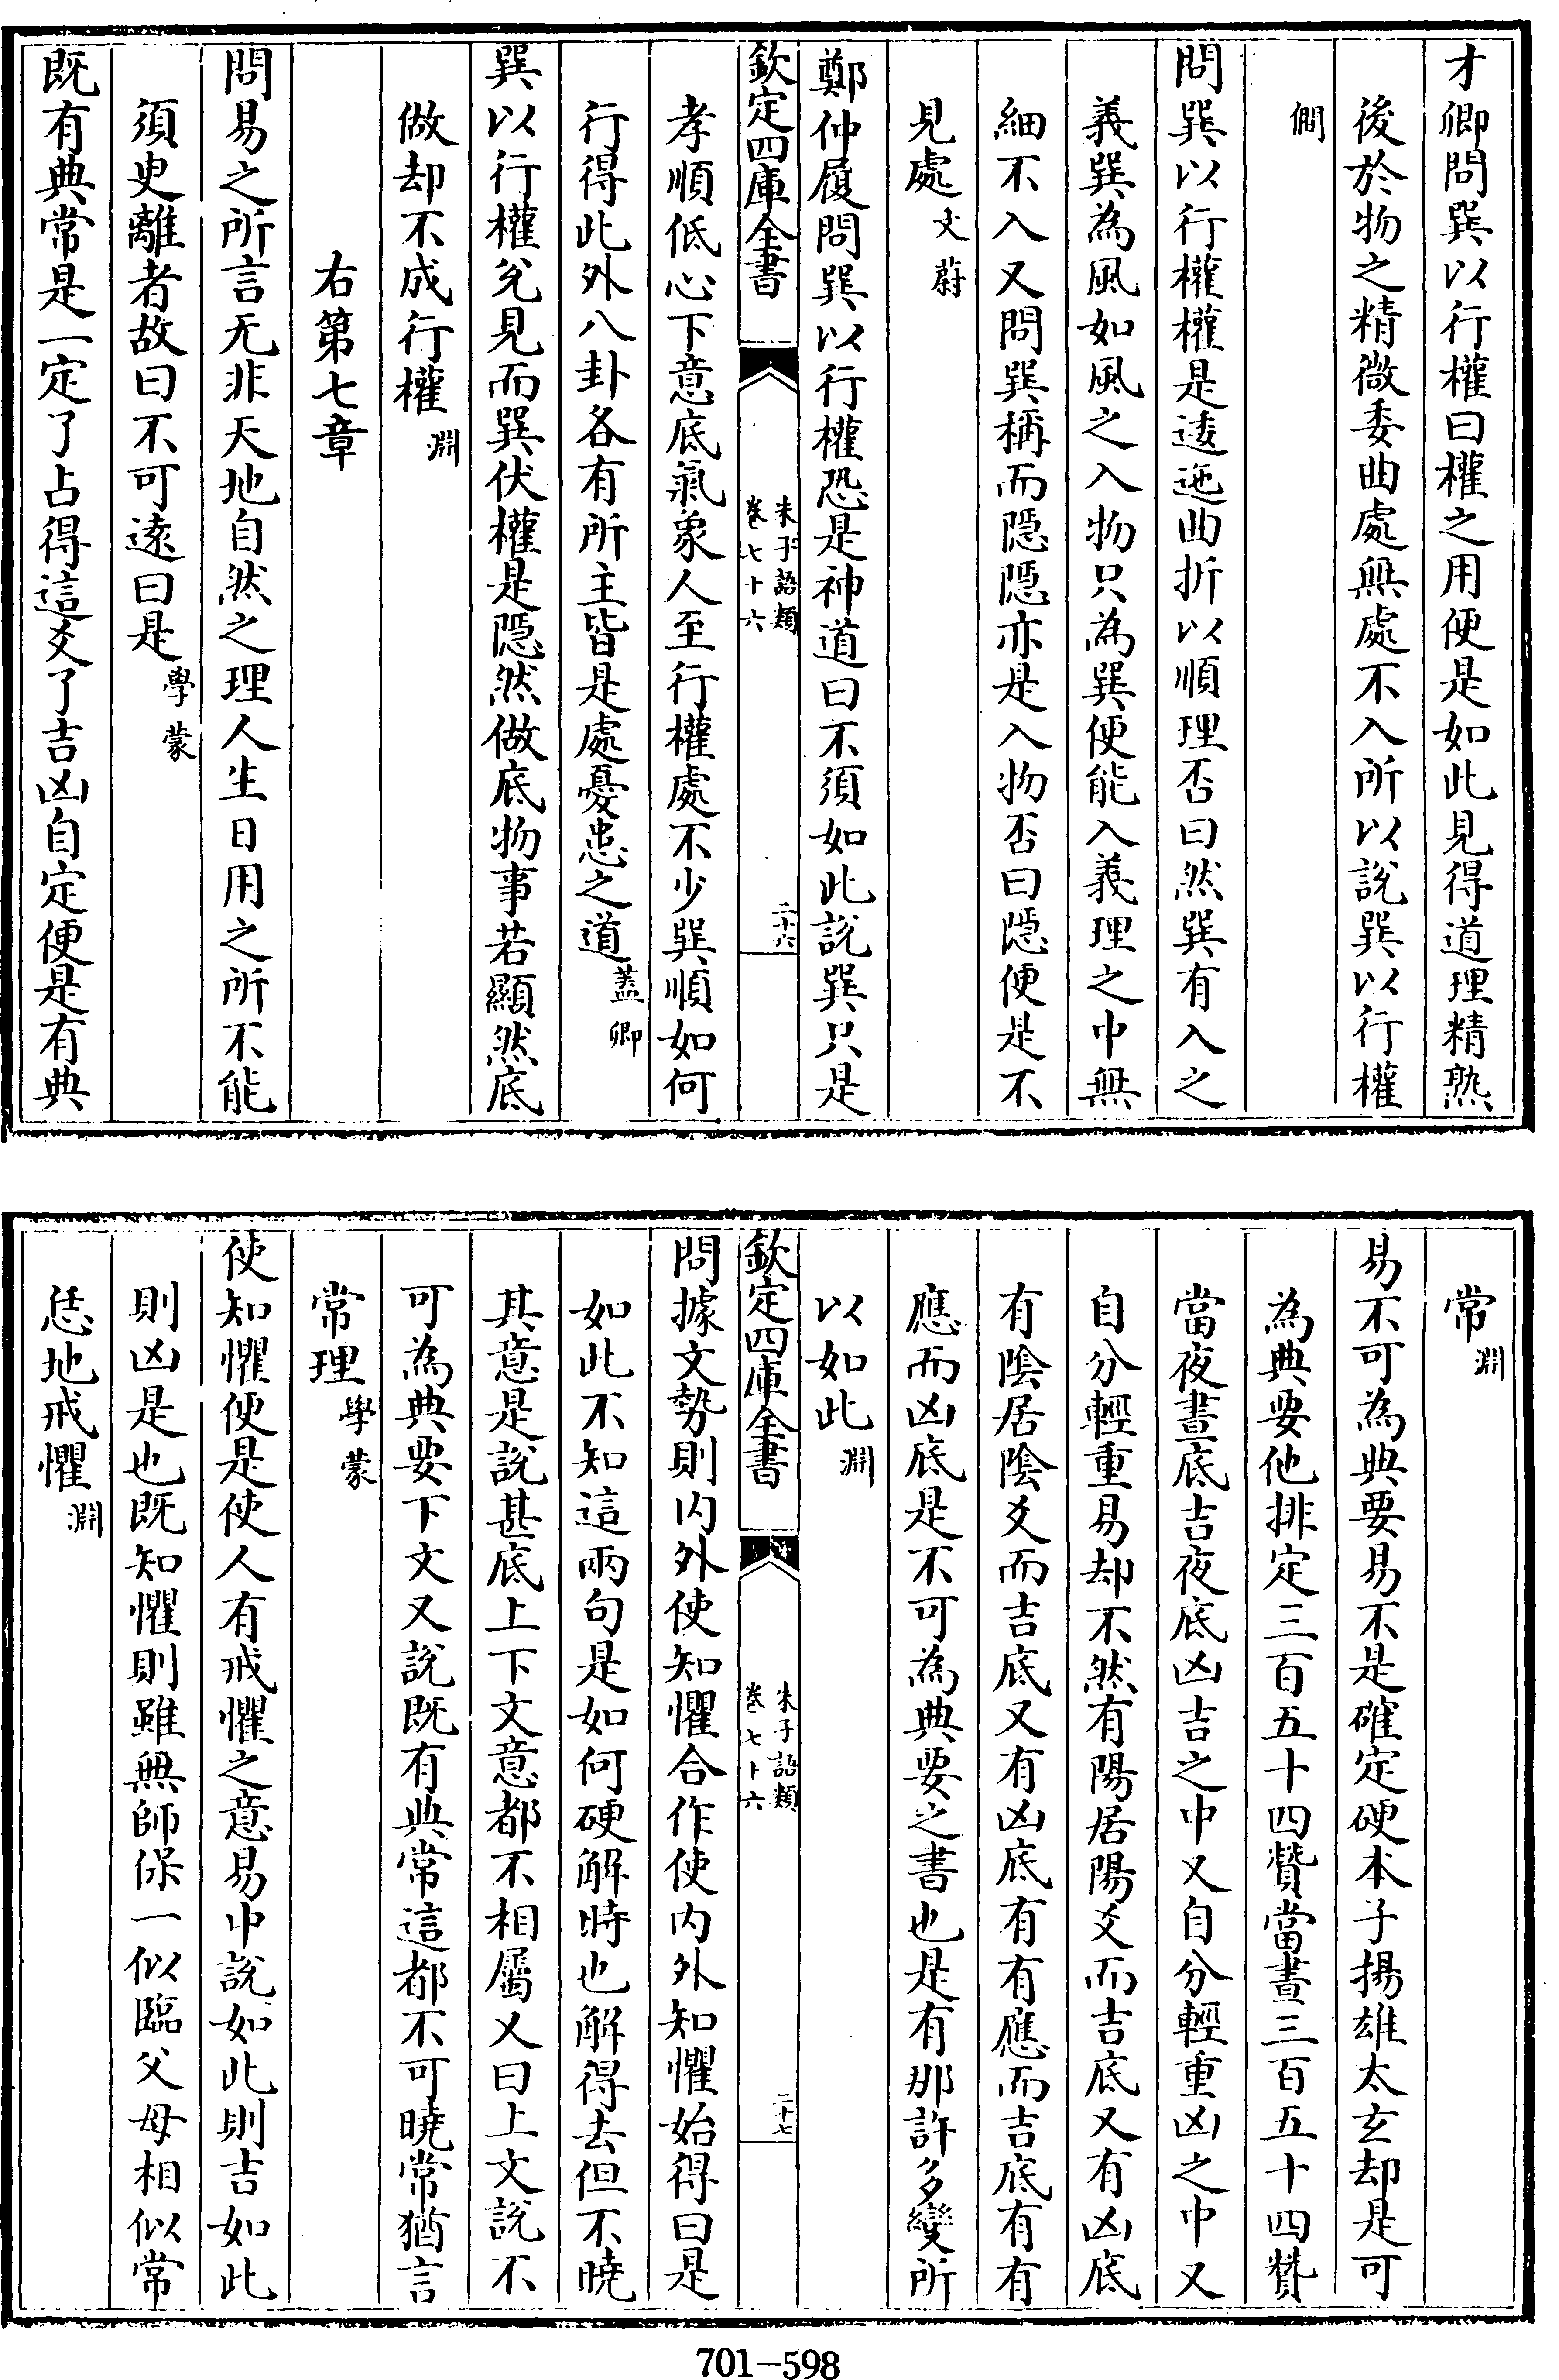 才卿問巽以行權曰權之用便是如此見得道理精熟
後於物之精微委曲處無處不入所以說巽以行權
僩
問巽以行權權是逶迤曲折以順理否曰然巽有入之
義巽為風如風之入物只為巽便能入義理之中無
細不入又問巽稱而隱隱亦是入物否曰隱便是不
見處文蔚
鄭仲履問巽以行權恐是神道曰不須如此說巽只是
欽定四庫全書
朱子語類
卷七十六
二十六
孝順低心下意底氣象人至行權處不少巽順如何
行得此外八卦各有所主皆是處憂患之道蓋卿
巽以行權兌見而巽伏權是隱然做底物事若顯然底
做却不成行權淵
右第七章
問易之所言无非天地自然之理人生日用之所不能
須史離者故曰不可遠曰是學蒙
既有典常是一定了占得這爻了吉凶自定便是有典
常淵
易不可為典要易不是確定硬本子揚雄太玄却是可
為典要他排定三百五十四贊當晝三百五十四贊
當夜晝底吉夜底凶吉之中又自分輕重凶之中又
自分輕重易却不然有陽居陽爻而吉底又有凶底
有陰居陰爻而吉底又有凶底有有應而吉底有有
應而凶底是不可為典要之書也是有那許多變所
以如此淵
欽定四庫全書
朱子語類
卷七十六
二十七
問據文勢則内外使知懼合作使内外知懼始得曰是
如此不知這兩句是如何硬解時也解得去但不曉
其意是說甚底上下文意都不相屬又曰上文說不
可為典要下文又說既有典常這都不可曉常猶言
常理學蒙
使知懼便是使人有戒懼之意易中說如此則吉如此
則凶是也既知懼則雖無師保一似臨父母相似常
恁地戒懼淵
701-598